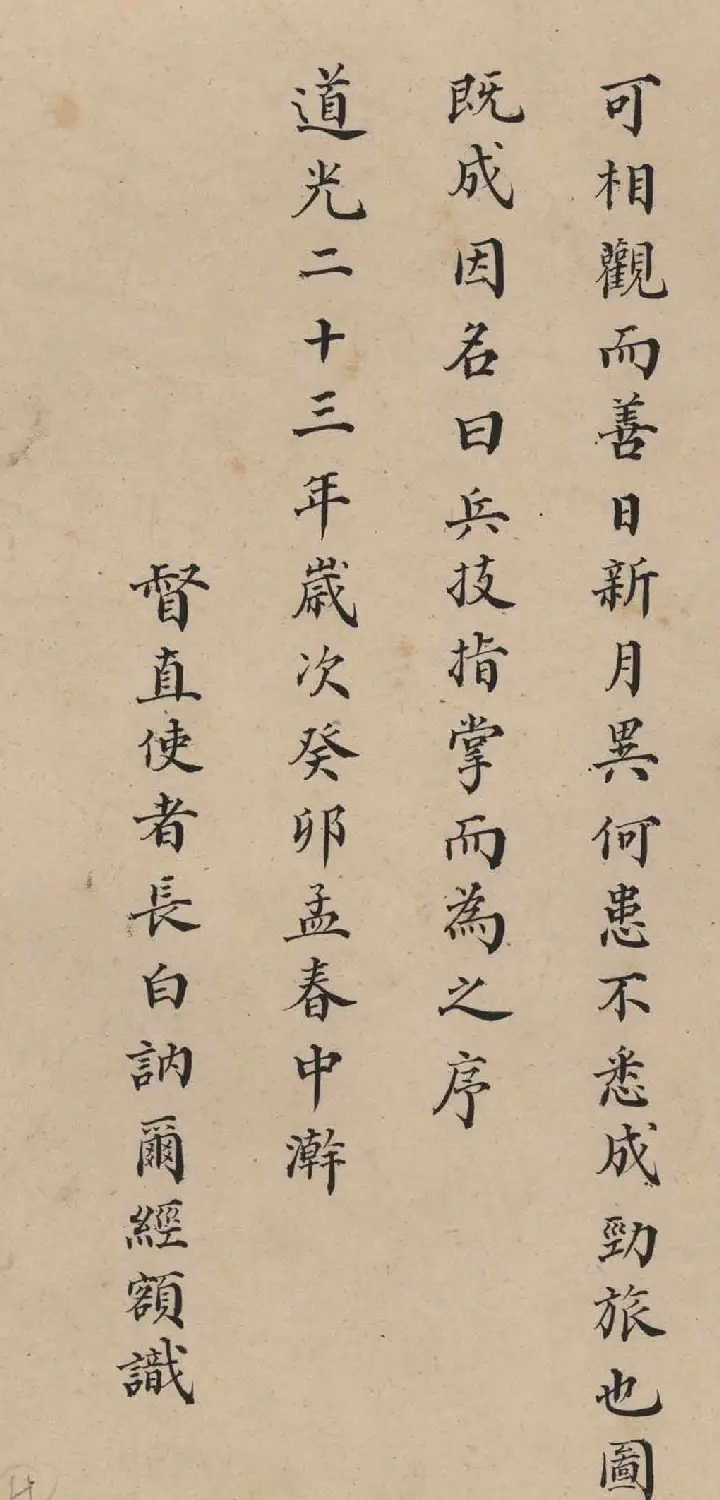 可相觀而善日新月異何患不悉成勁旅也圖
既成因名曰兵技指掌而為之序
道光二十三年歲次癸卯孟春中澣
督直使者長白訥爾經額識